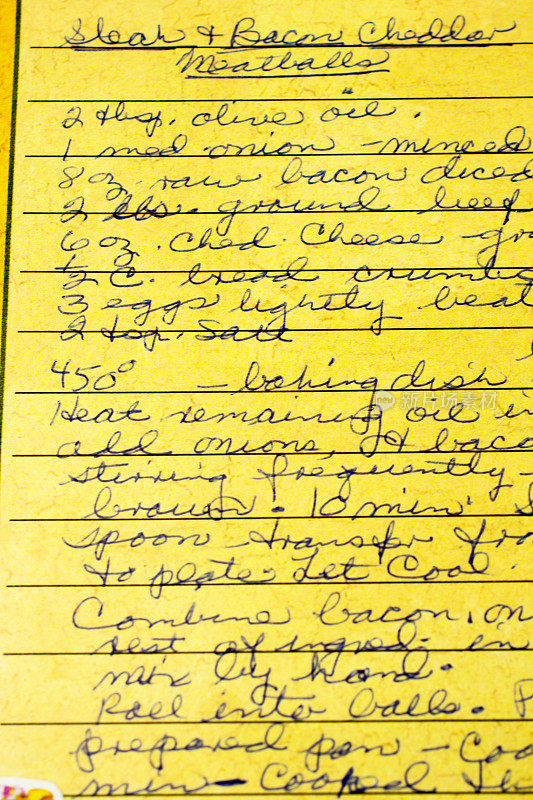 Steak & Bacon Cheddar
Meatballs
2 tbsp. olive oil.
1 med. onion - minced
8 oz. raw bacon diced
2 lbs. ground beef
6 oz. Ched. Cheese - gra
1/2 C. bread crumbs
3 eggs lightly beat
2 tsp. Salt
450° - baking dish
Heat remaining oil in
add onions, & baco
stirring frequently -
brown. 10 min. S
spoon - transfr fro
to plate. Let Cool.
Combine bacon, on
rest of ingred. in
mix by hand.
Roll into balls. P
prepared pan - Coo
min - Cooked